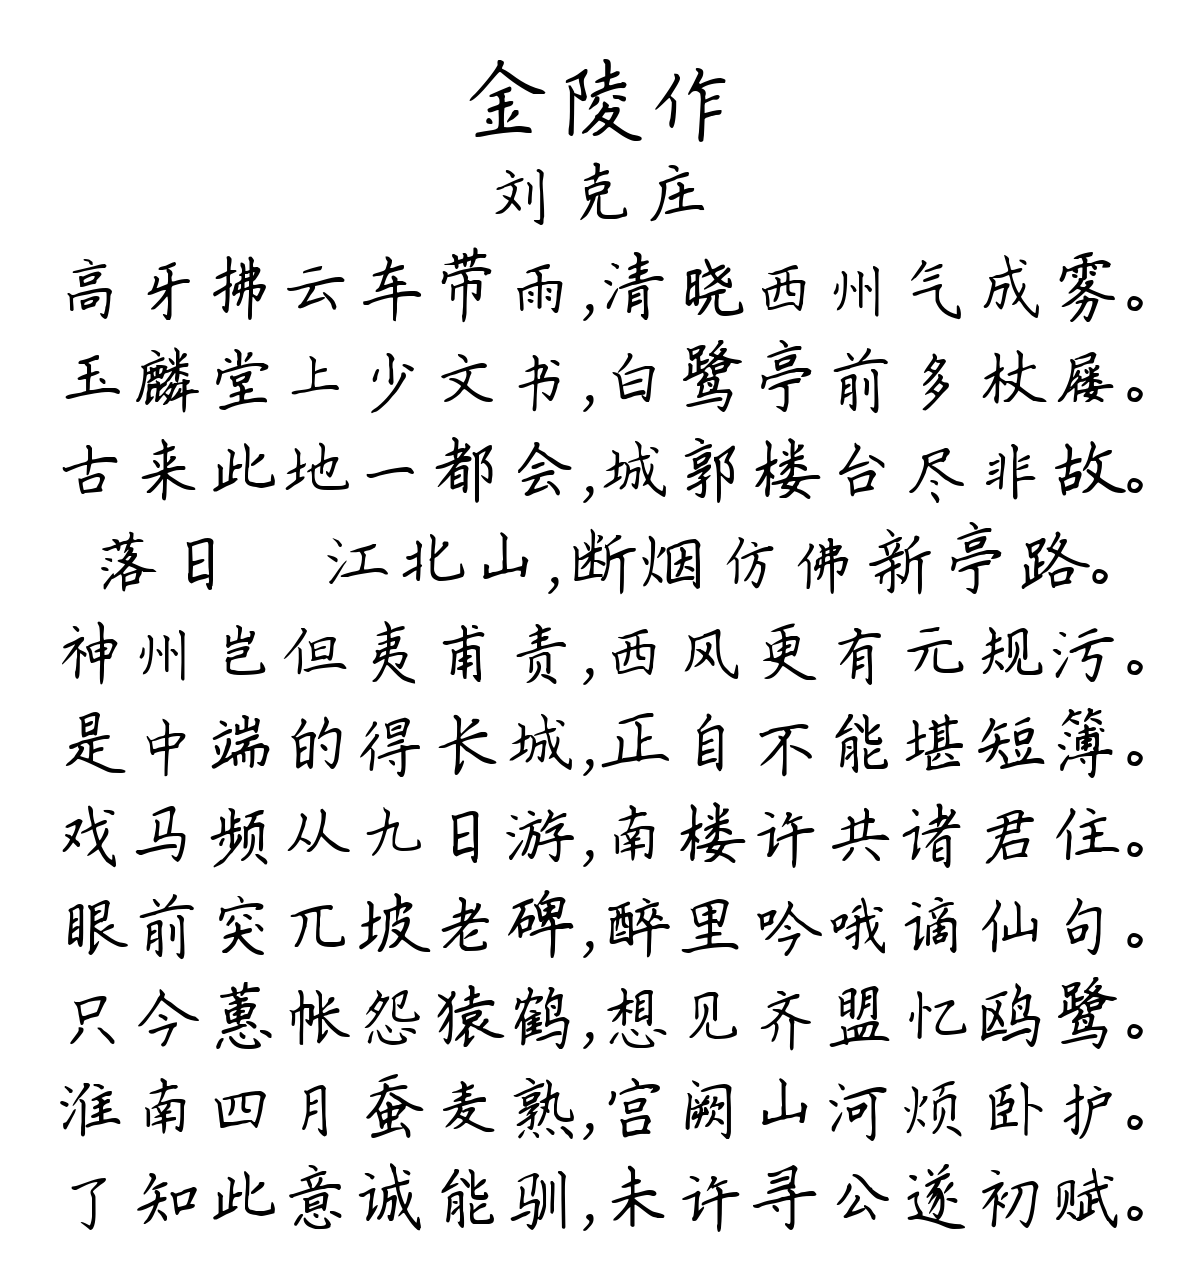 金陵作
刘克庄
高牙拂云车带雨,清晓西州气成雾。
玉麟堂上少文书,白鹭亭前多杖屦。
古来此地一都会,城郭楼台尽非故。
落日 江北山,断烟仿佛新亭路。
神州岂但夷甫责,西风更有元规污。
是中端的得长城,正自不能堪短簿。
戏马频从九日游,南楼许共诸君住。
眼前突兀坡老碑,醉里吟哦谪仙句。
只今蕙帐怨猿鹤,想见齐盟忆鸥鹭。
淮南四月蚕麦熟,宫阙山河烦卧护。
了知此意诚能驯,未许寻公遂初赋。